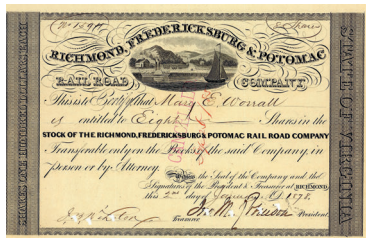 RICHMOND, FREDERICKSBURG & POTOMAC
RAIL ROAD COMPANY
This is to Certify that Mary E. Worrall
is entitled to Eight Shares in the
STOCK OF THE RICHMOND, FREDERICKSBURG & POTOMAC RAIL ROAD COMPANY
Transferable only on the Books of the said Company, in
person or by Attorney
Witness the Seal of the Company and the
Signatures of the President & Treasurer at RICHMOND
this 2nd day of January 1878.
Treasurer
President
SHARES ONE HUNDRED DOLLARS EACH
STATE OF VIRGINIA